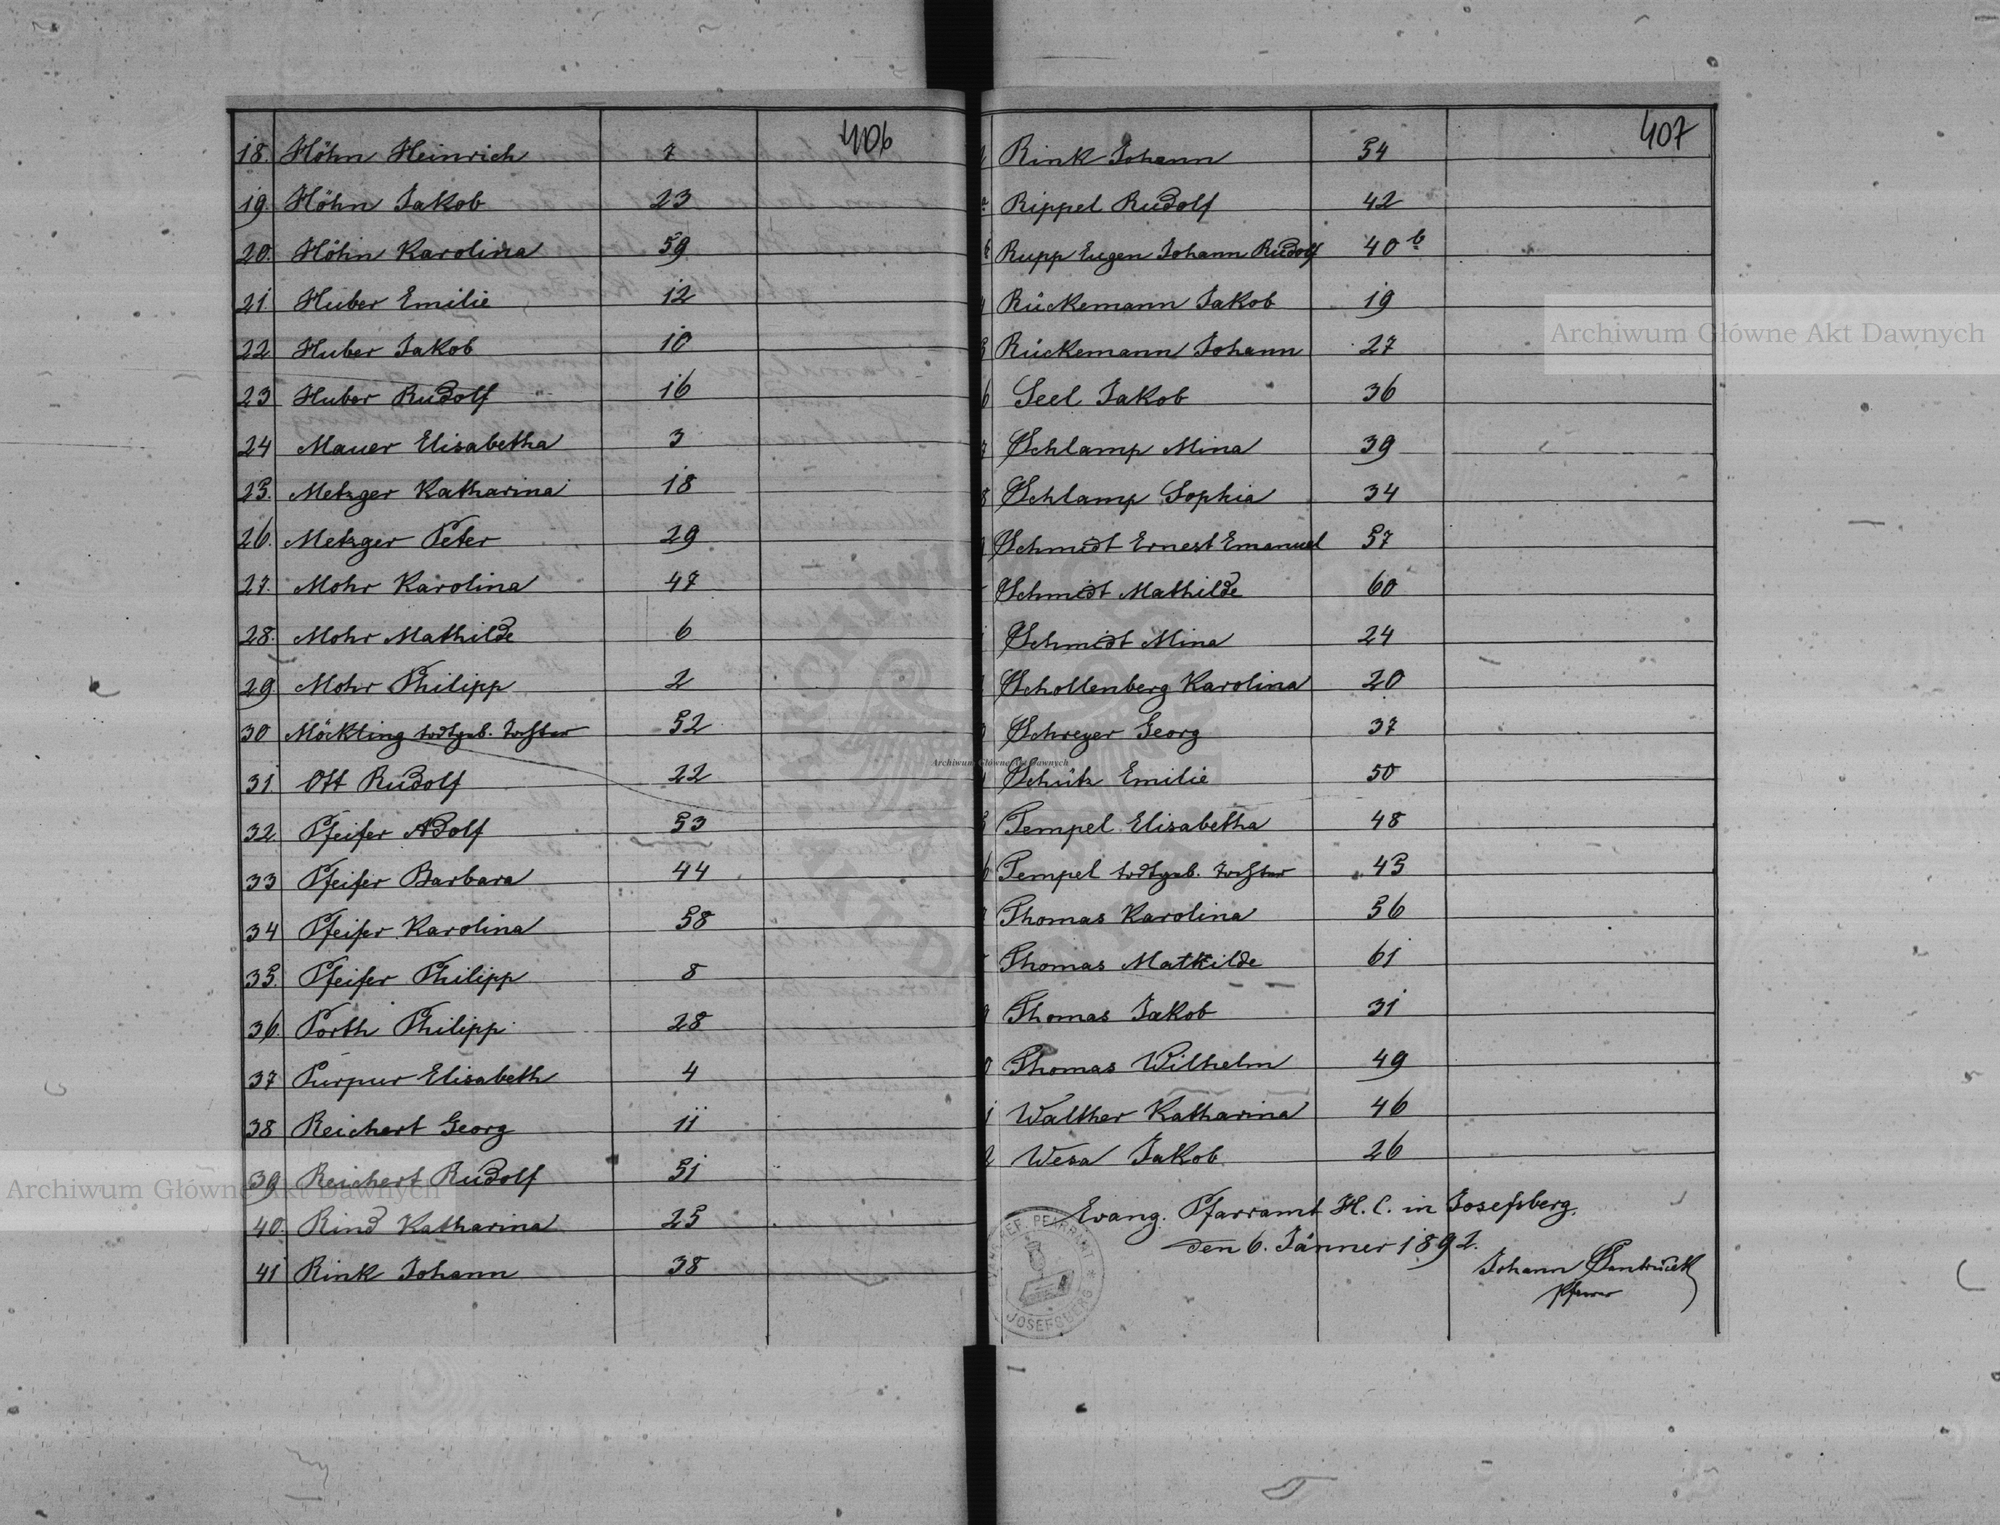 406
18. Höhn Heinrich 7
19. Höhn Jakob 23
20. Höhn Karolina 59
21. Huber Emilie 12
22 Huber Jakob 10
23 Huber Rudolf 16
24 Mauer Elisabetha 3
25. Metzger Katharina 18
26. Metzger Peter 29
27. Mohr Karolina 47
28. Mohr Mathilde 6
29 Mohr Philipp 2
30 Möckting todtgeb. Tochter 52
31 Ott Rudolf 22
32. Pfeifer Adolf 53
33 Pfeifer Barbara 44
34 Pfeifer Karolina 58
35. Pfeifer Philipp 8
36. Porth Philipp 28
37 Purpur Elisabeth 4
38 Reichert Georg 11
39 Reichert Rudolf 51
40. Rind Katharina 25
41 Rink Johann 38
407
Rink Johann 54
Rippel Rudolf 42
Rupp Eugen Johann Rudolf 40 b
Rückemann Jakob 19
Rückemann Johann 27
Seel Jakob 36
Schlamp Mina 39
Schlamp Sophia 34
Schmidt Ernest Emanuel 57
Schmidt Mathilde 60
Schmidt Mina 24
Schollenberg Karolina 20
Schreyer Georg 37
Schütz Emilie 50
Tempel Elisabetha 48
Tempel todtgeb. Tochter 45
Thomas Karolina 56
Thomas Mathilde 61
Thomas Jakob 31
Thomas Wilhelm 49
Walther Katharina 46
Wesa Jakob 26
Evang. Pfarramt H. C. in Josefsberg.
den 6. Jänner 1892.
Johann
Pfarrer
JOSEFSBERG
Archiwum Główne Akt Dawnych
Archiwum Główne Akt Dawnych
Archiwum Główne Akt Dawnych